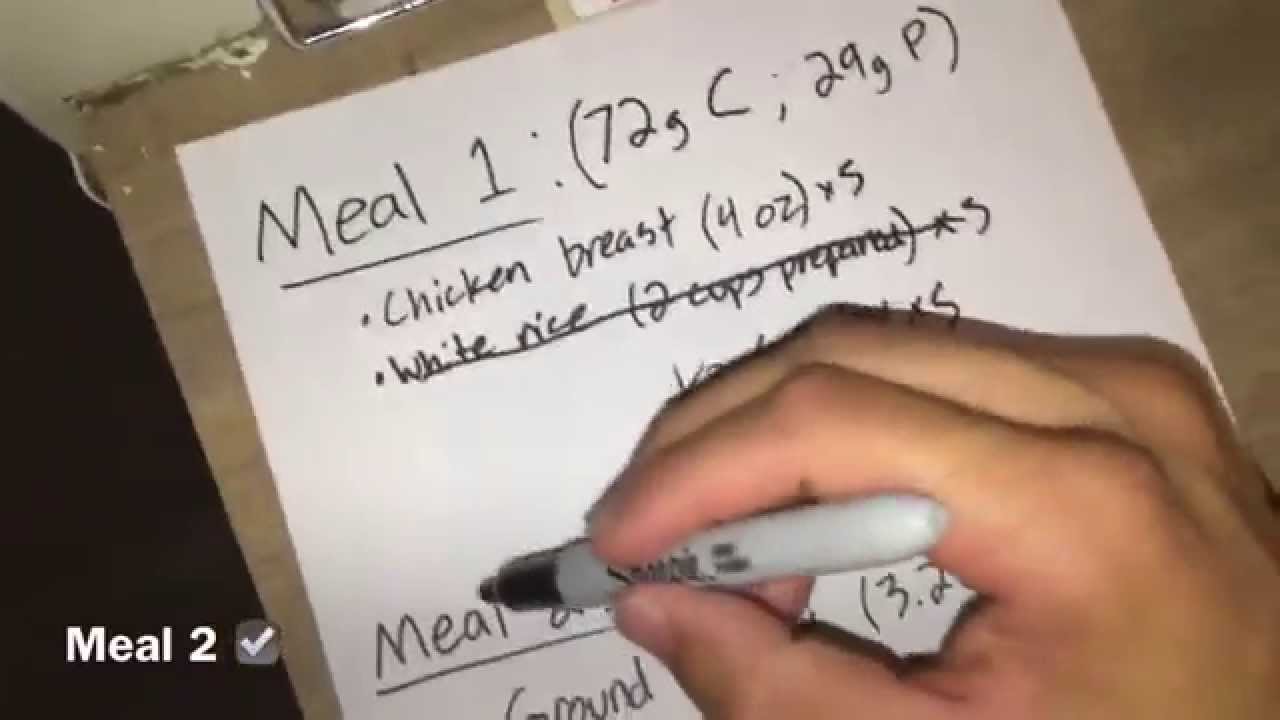 Meal 1: (72g C; 29g P)
• Chicken breast (4 oz) x5
• White rice (2 cups prepared) x5
x5
Meal
(3.2
Ground
Meal 2 ✅
Sharpie